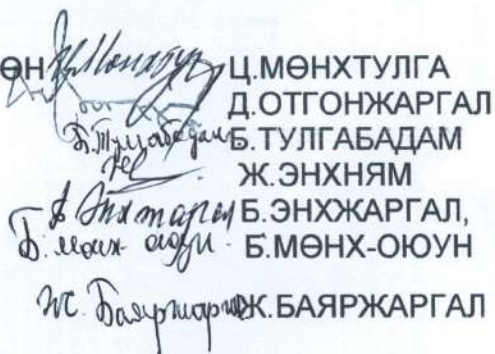 ӨН Ц.МӨНХТУЛГА
Д.ОТГОНЖАРГАЛ
Б.Тулгабадам Б.ТУЛГАБАДАМ
Ж.ЭНХНЯМ
Б.ЭНХЖАРГАЛ,
Б. Мөнх-оюун Б.МӨНХ-ОЮУН
Ж. Баяржаргал Ж.БАЯРЖАРГАЛ